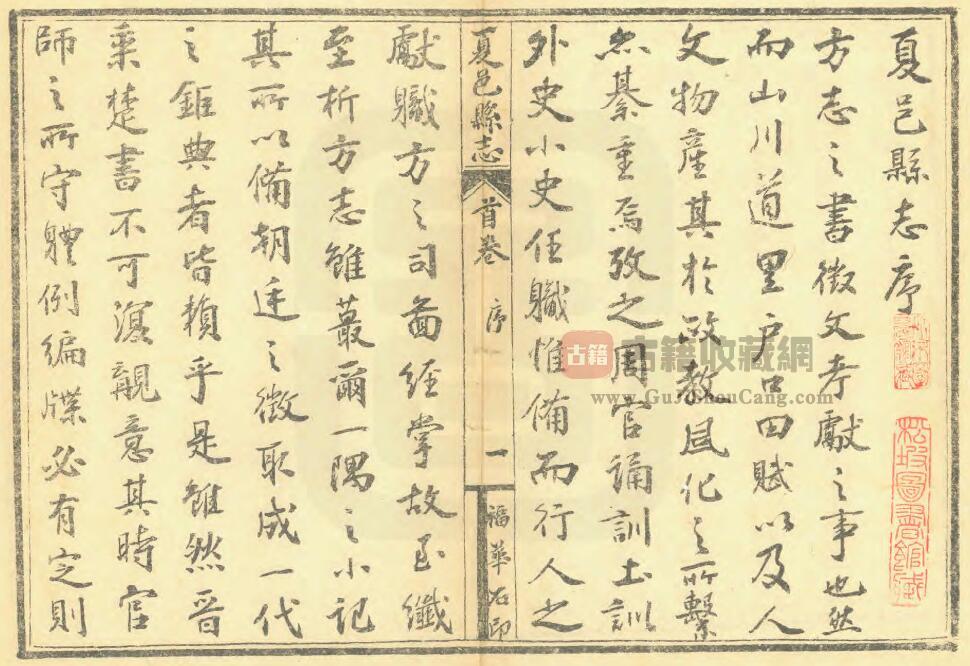 夏邑縣志序
方志之書徵文考獻之事也然
而山川道里户口田賦以及人
文物產其於政教風化之所繫
亦綦重焉攷之周官誦訓土訓
外史小史任職惟備而行人之
夏邑縣志 首卷 序 一 福華石印
獻職方之司圖經掌故至纖
至析方志雖蕞爾一隅之小記
其所以備朝廷之徵取成一代
之鉅典者皆賴乎是雖然晉
乘楚書不可復覩意其時官
師之所守體例編牒必有定則
松坡圖書館藏
古籍
古籍收藏網
www.GuJiShouCang.com